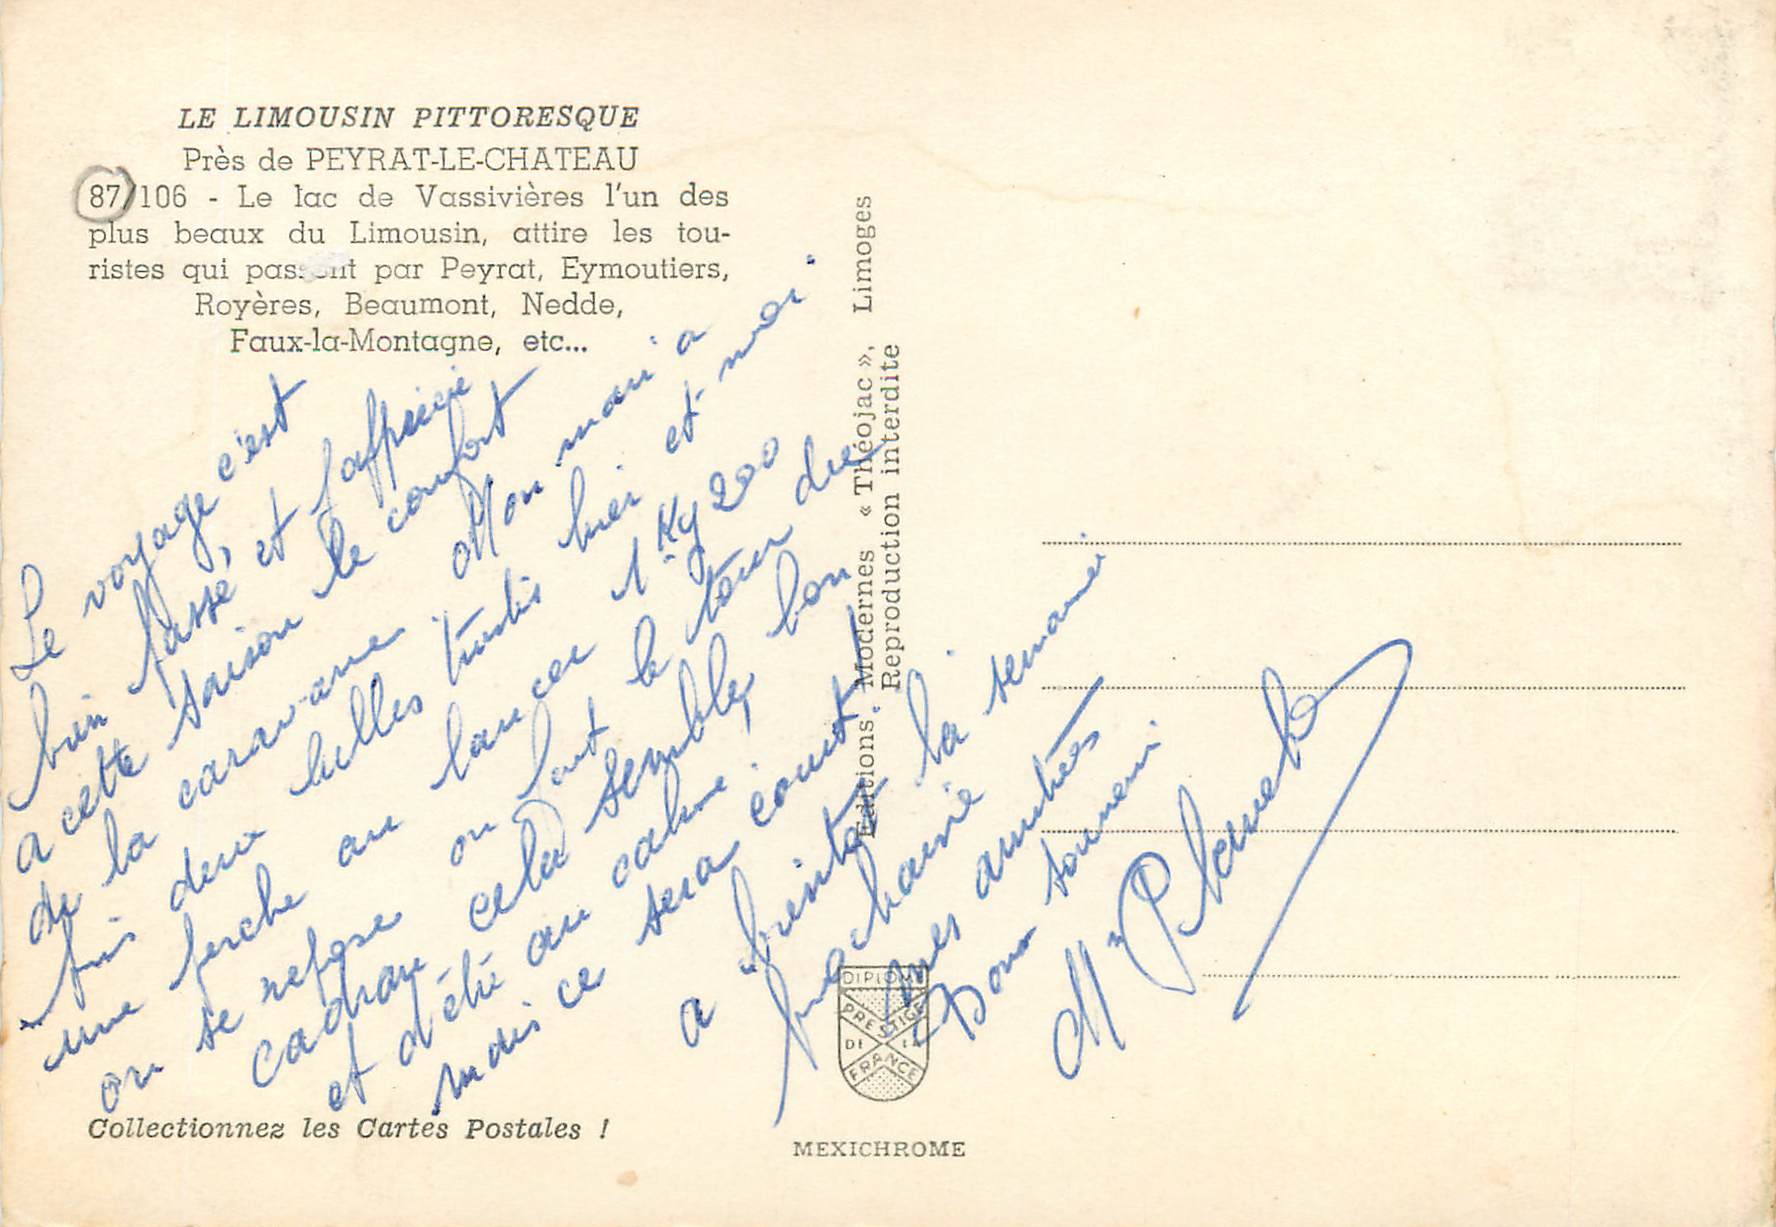 LE LIMOUSIN PITTORESQUE
Près de PEYRAT-LE-CHATEAU
87/106 - Le lac de Vassivières l'un des
plus beaux du Limousin, attire les tou-
ristes qui passent par Peyrat, Eymoutiers,
Royères, Beaumont, Nedde,
Faux-la-Montagne, etc...
Le voyage c'est
bien passé, et j'apprécie
a cette saison le confort
de la caravane. Mon mari a
pris deux belles truites hier et moi
une perche au lancer 1 Kg 200
on se repose on fait le tour du
cadran cela semble bon
et d'été au calme
mais ce sera court!
a bientot la semaine
prochaine
mes amitiés
Bon souvenir
Mme
Collectionnez les Cartes Postales !
Editions Modernes « Théojac », Limoges
Reproduction interdite
DIPLOME
PRESTIGE
DE LA
FRANCE
MEXICHROME